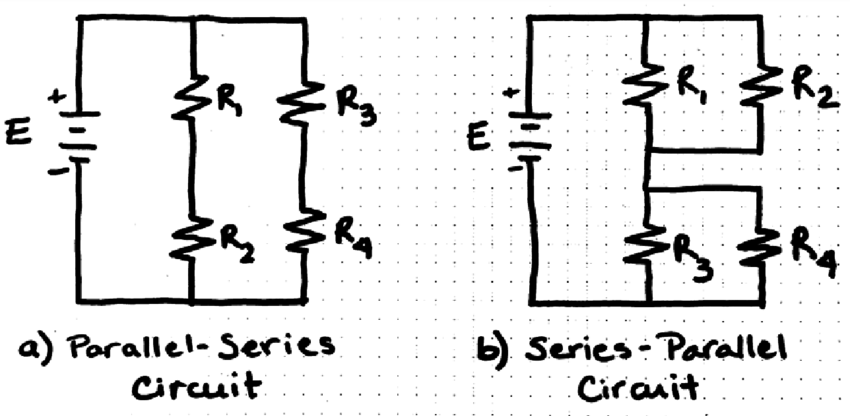 +
E
-
R1
R2
R3
R4
a) Parallel-Series
Circuit
+
E
-
R1
R2
R3
R4
b) Series-Parallel
Circuit